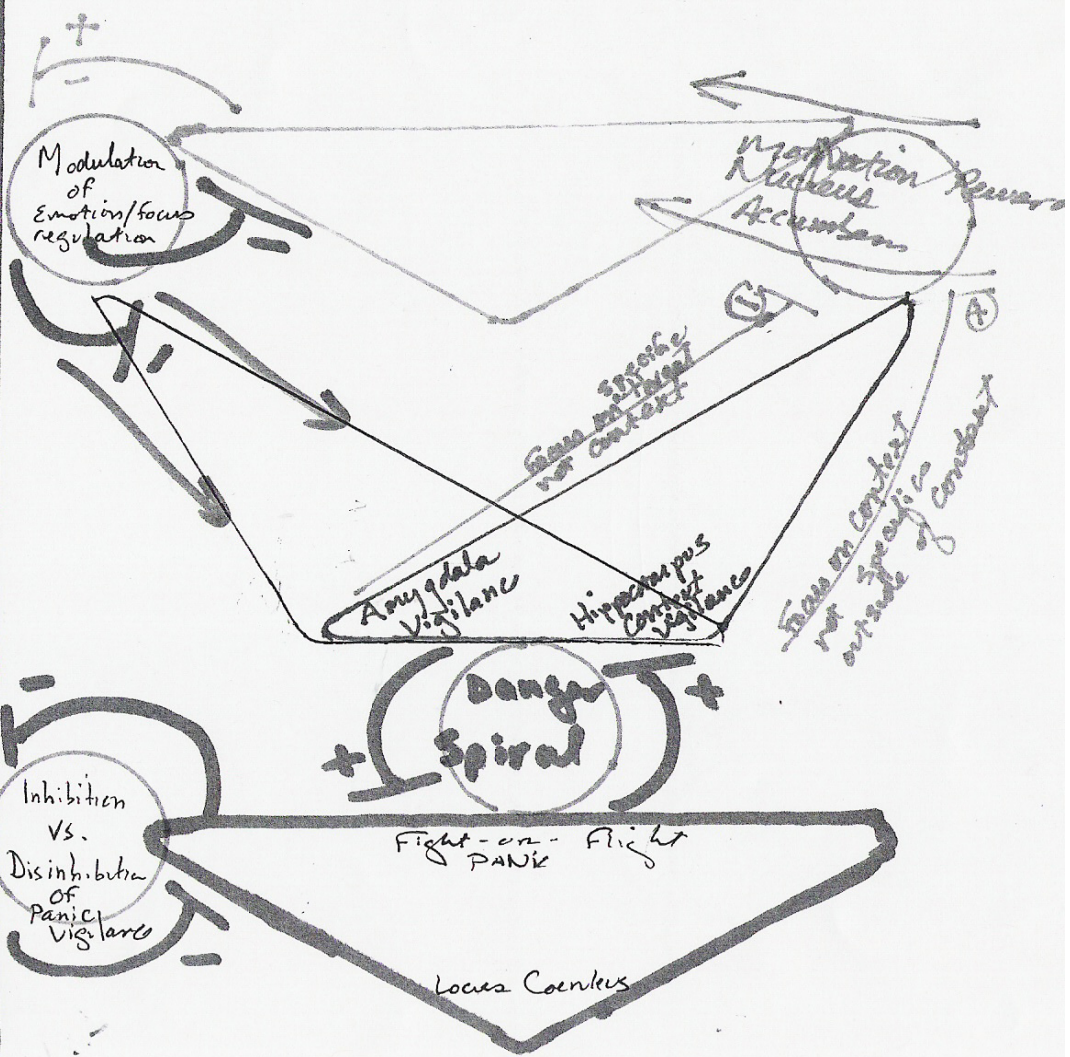 +
-
Modulation
of
Emotion/focus
regulation
-
-
Motivation Reward
Nucleus
Accumbens
+
Specific
Focus on target
not context
Focus on context
not specifics
outside of context
Amygdala
Vigilance
Hippocampus
context
vigilance
Danger
Spiral
+
+
-
Inhibition
vs.
Disinhibition
of
Panic
Vigilance
-
Fight-or-Flight
PANIC
Locus Coeruleus